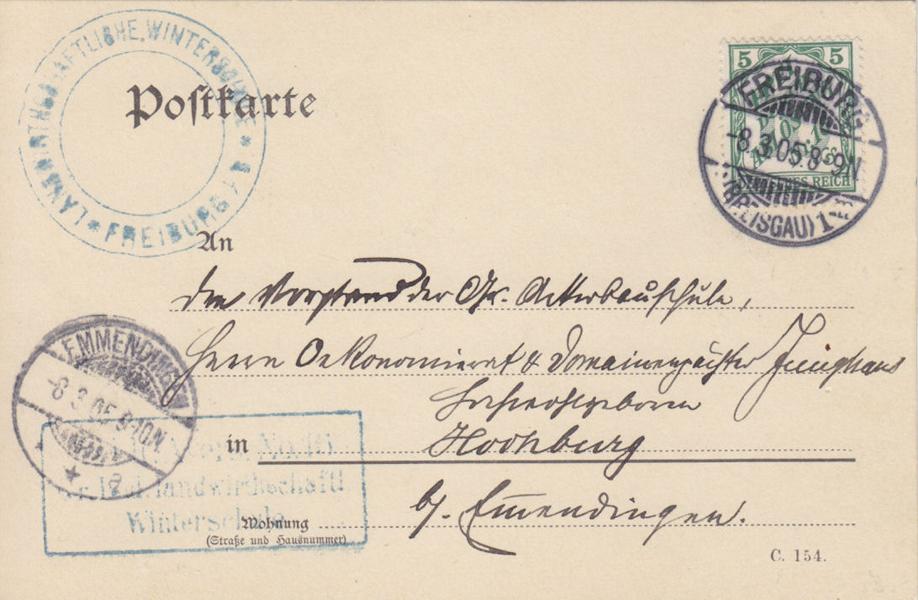 LANDWIRTHSCHAFTLICHE WINTERSCHULE
* FREIBURG i/B *
Postkarte
5 5
DEUTSCHES REICH
FREIBURG
-8.3.05.8-9N.
(BREISGAU) 1
An
den Vorstand der Gr. Ackerbauschule,
Herrn Oekonomierat & Domainenpächter Junghans
Hochburg
in
b/. Emendingen.
EMMENDINGEN
-8.3.05.9-10N.
landwirthschaftl
Winterschule
Wohnung
(Straße und Hausnummer)
C. 154.